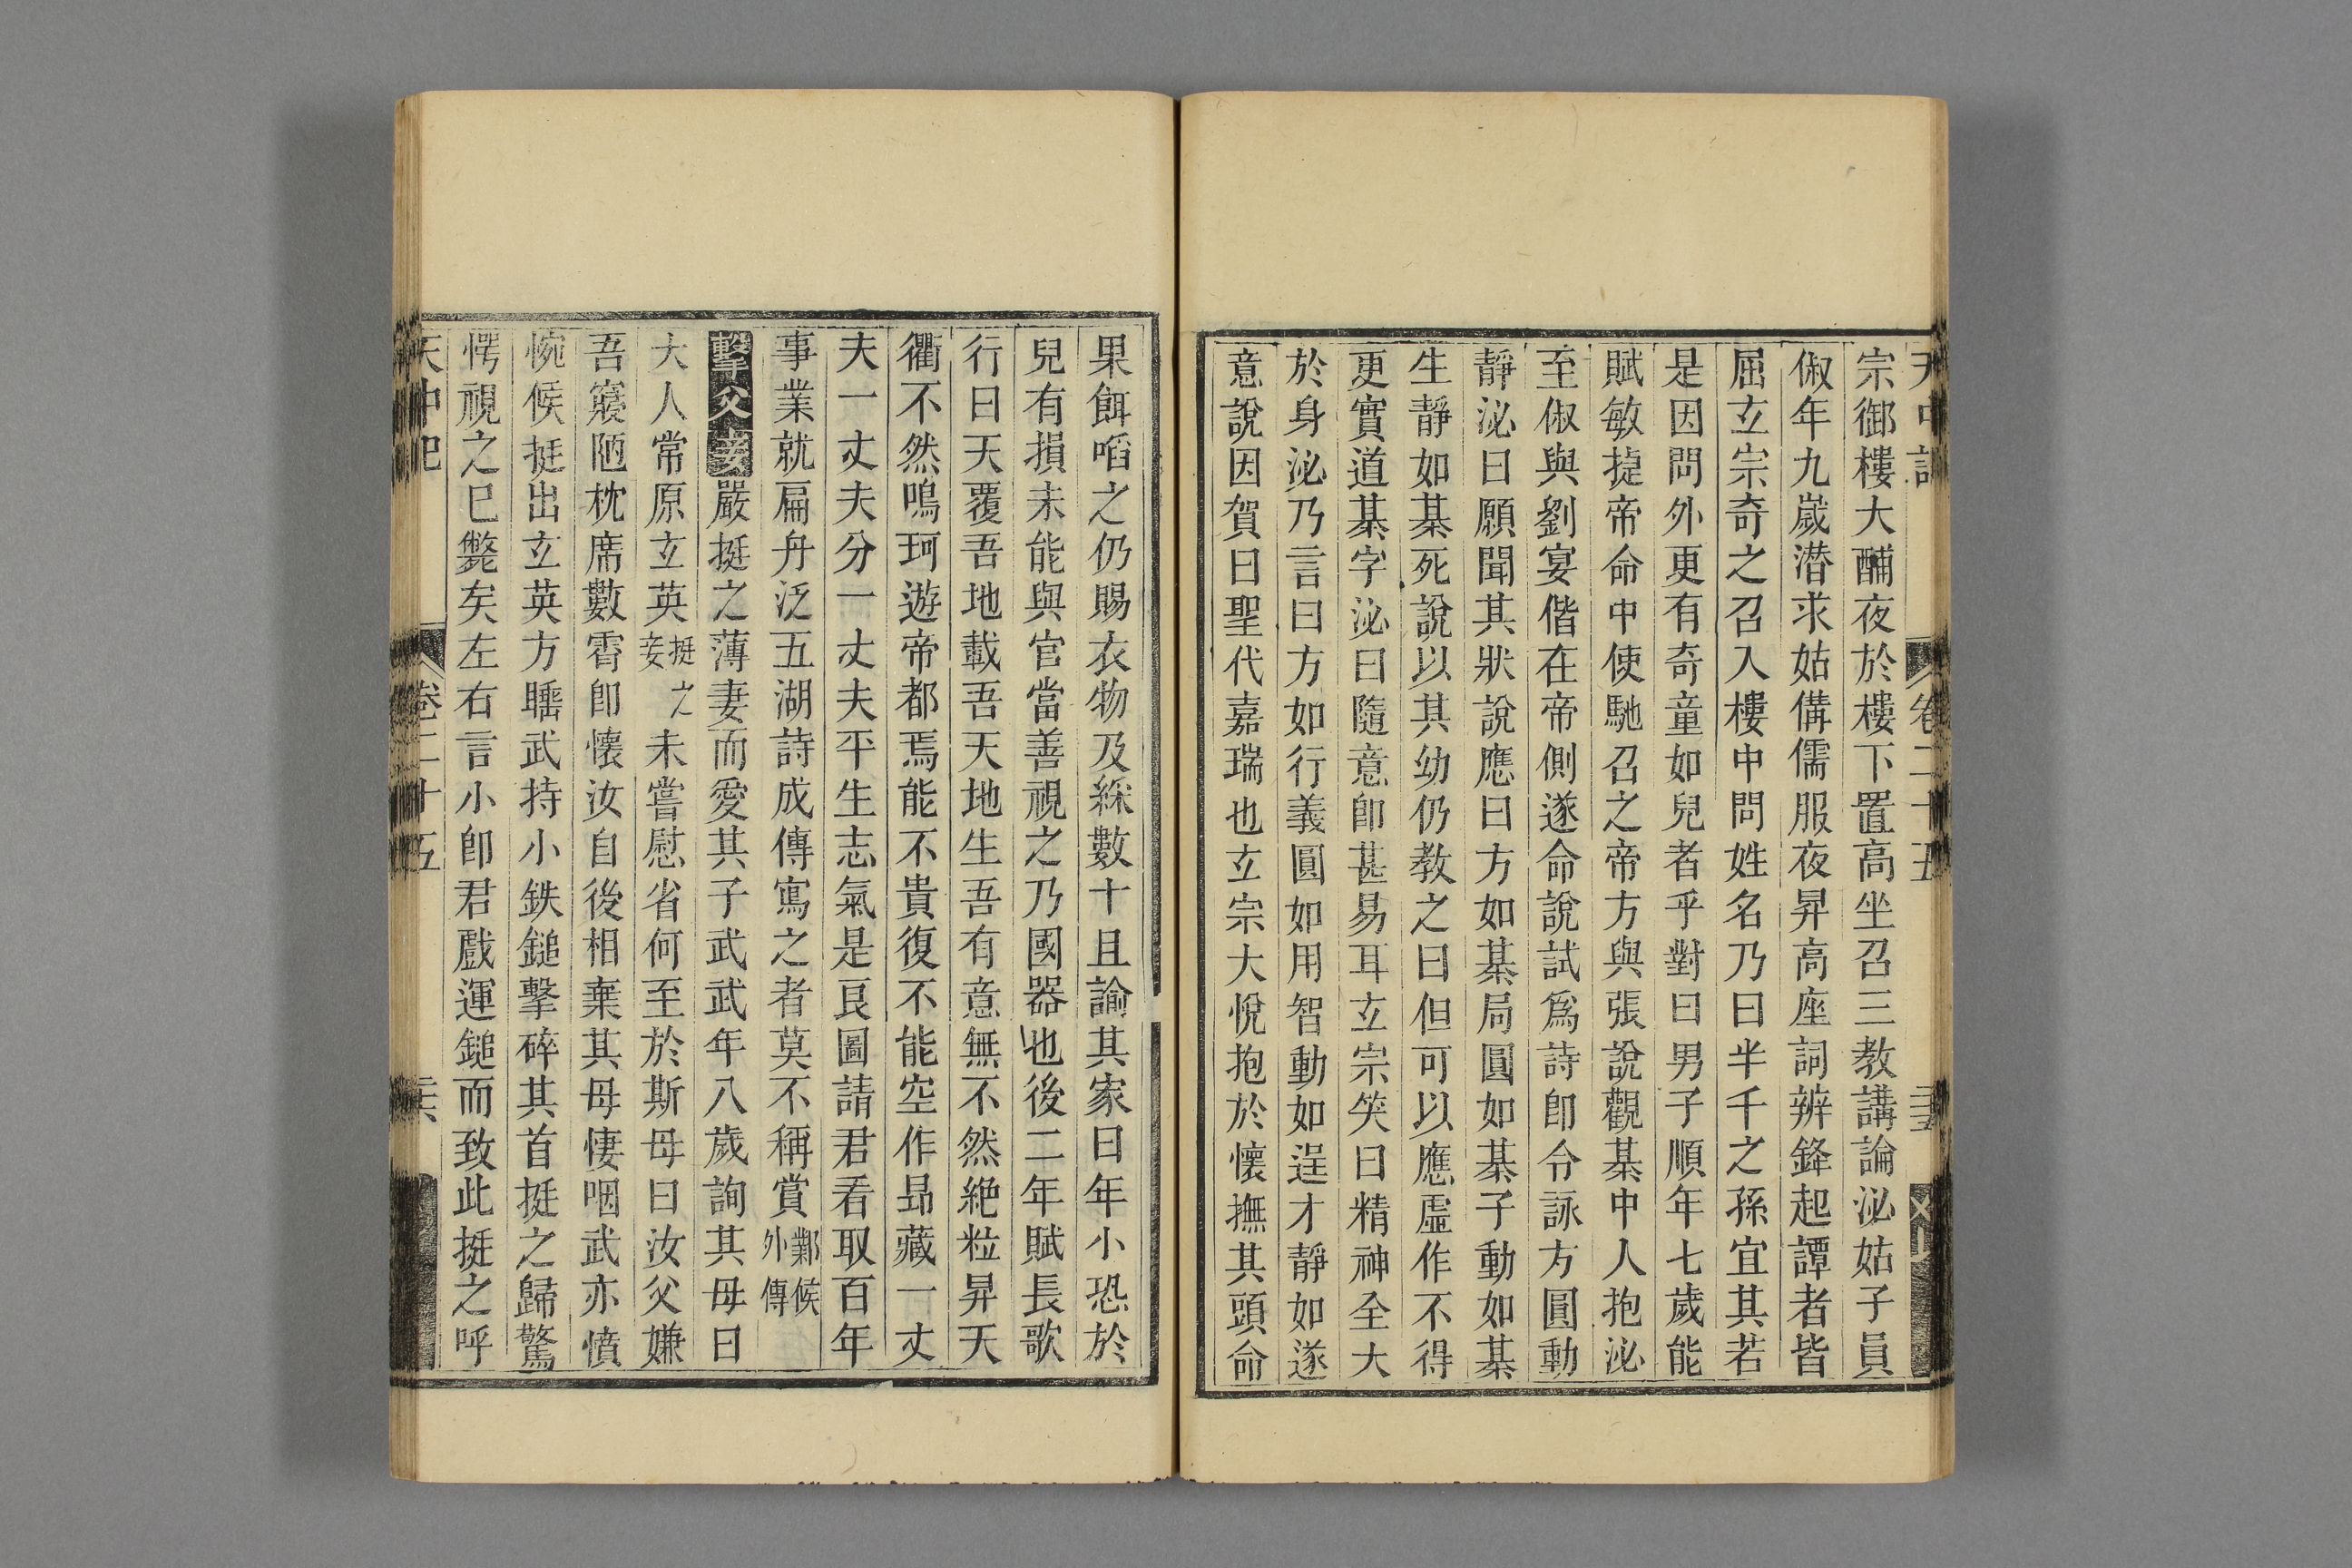 天中記 卷二十五 三十五
宗御樓大酺夜於樓下置高坐召三教講論泌姑子員
俶年九歲潜求姑備儒服夜昇高座詞辨鋒起譚者皆
屈玄宗奇之召入樓中問姓名乃曰半千之孫宜其若
是因問外更有奇童如兒者乎對曰男子順年七歲能
賦敏㨗帝命中使馳召之帝方與張說觀棊中人抱泌
至俶與劉宴偕在帝側遂命說試爲詩卽令詠方圓動
靜泌曰願聞其狀說應曰方如棊局圓如棊子動如棊
生靜如棊死說以其幼仍教之曰但可以應虛作不得
更實道棊字泌曰隨意卽甚易耳玄宗笑曰精神全大
於身泌乃言曰方如行義圓如用智動如逞才靜如遂
意說因賀曰聖代嘉瑞也玄宗大悅抱於懷撫其頭命
果餌啗之仍賜衣物及綵數十且諭其家曰年小恐於
兒有損未能與官當善視之乃國器也後二年賦長歌
行曰天覆吾地載吾天地生吾有意無不然絕粒昇天
衢不然鳴珂遊帝都焉能不貴復不能空作昂藏一丈
夫一丈夫分一丈夫平生志氣是良圖請君看取百年
事業就扁舟泛五湖詩成傳寫之者莫不稱賞鄴侯外傳
擊父妾嚴挺之薄妻而愛其子武武年八歲詢其母曰
大人常原玄英挺之妾未嘗慰省何至於斯母曰汝父嫌
吾寢陋枕席數宵卽懷汝自後相棄其母悽咽武亦憤
惋候挺出玄英方睡武持小鉄鎚擊碎其首挺之歸驚
愕視之已斃矣左右言小郎君戲運鎚而致此挺之呼
天中記 卷二十五 三十六